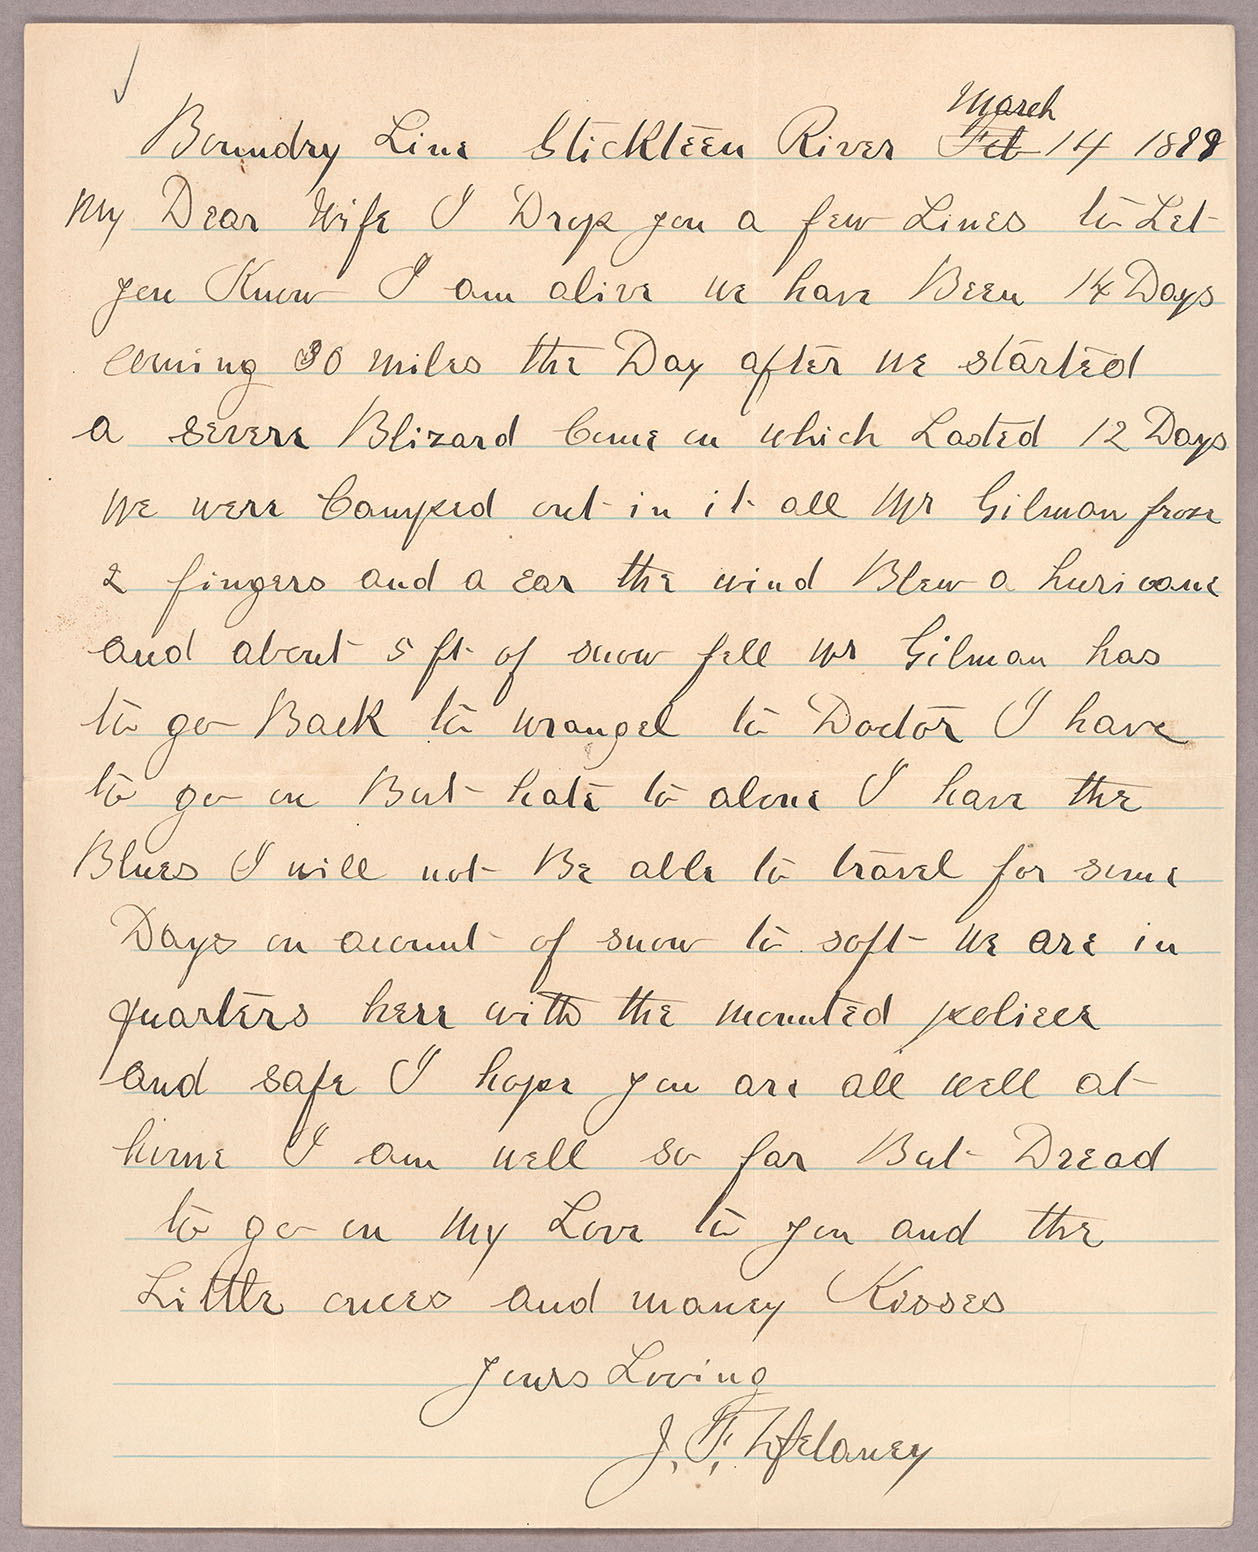 March
Boundry Line Stickteen River Feb 14 1898
My Dear Wife I Drop you a few Lines to Let
you Know I am alive we have Been 14 Days
coming 30 miles the Day after we started
a severe Blizard Came on which Lasted 12 Days
we were Camped out in it all Mr Gilman froze
2 fingers and a ear the wind Blew a huricane
and about 5 ft of snow fell Mr Gilman has
to go Back to wrangel to Doctor I have
to go on But hate to alone I have the
Blues I will not Be able to travel for some
Days on acount of snow to soft we are in
quarters here with the mounted police
and safe I hope you are all well at
home I am well so far But Dread
to go on My Love to you and the
Little ones and maney Kisses
yours Loving
J. F. Delaney